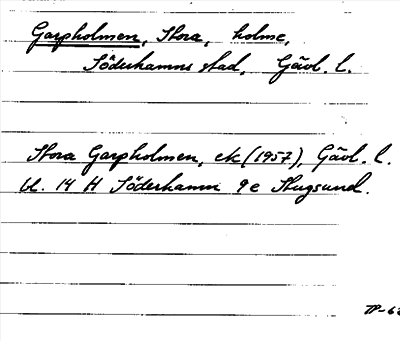 Garpholmen, Stora, holme,
Söderhamns stad, Gävl. l.
Stora Garpholmen, ek (1957), Gävl. l.
bl. 14 H Söderhamn 9 e Stugsund.